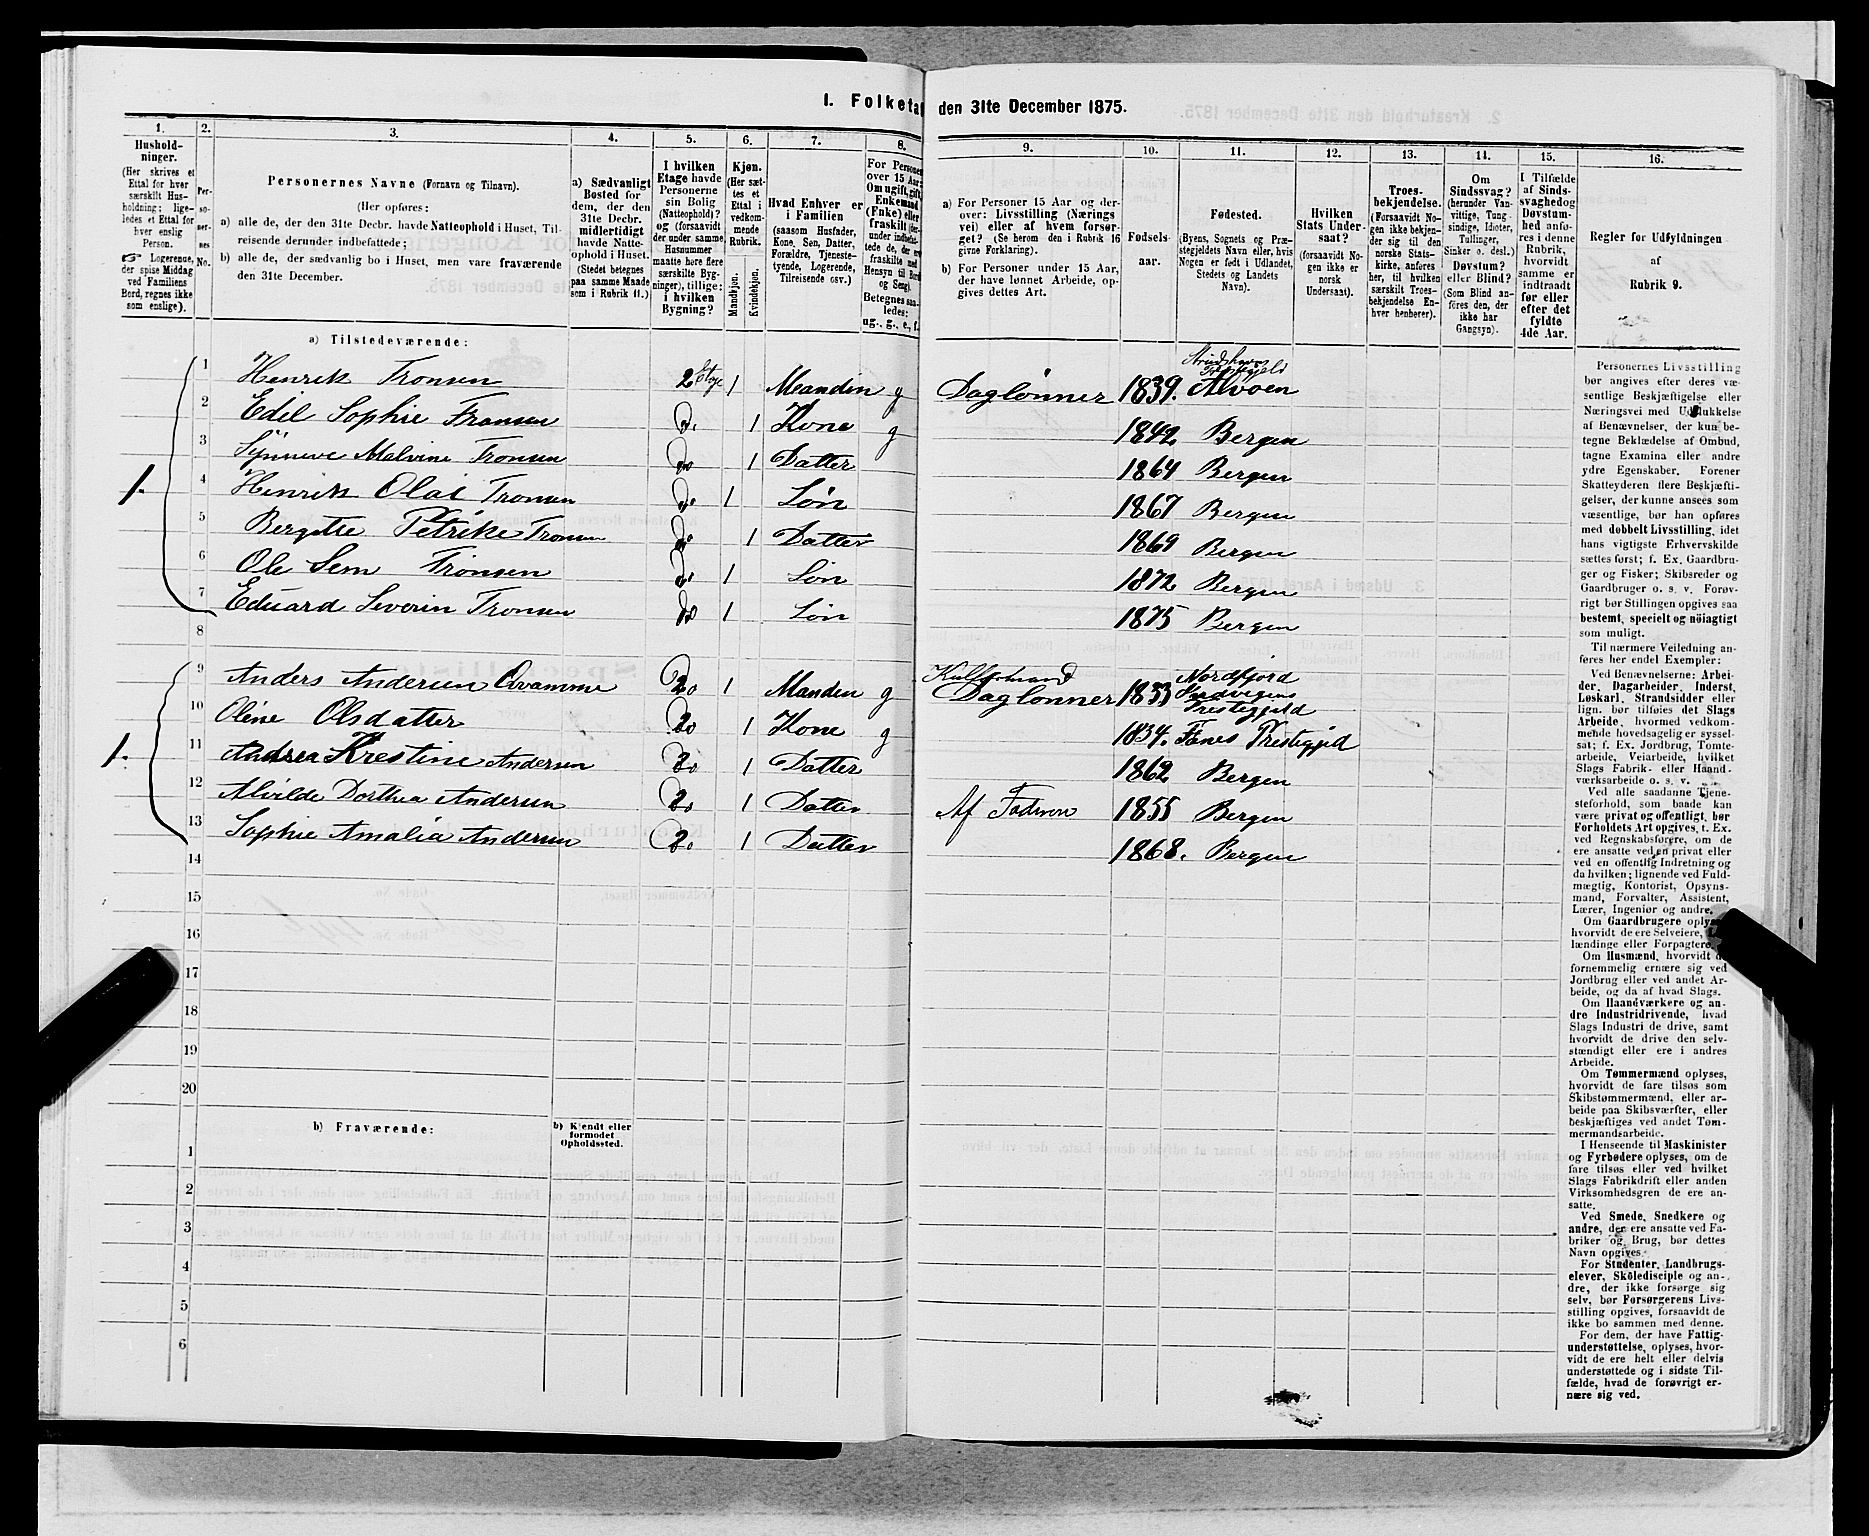 1. Folketal den 31te December 1875.
1. 2. 3. 4. 5. 6. 7. 8. 9. 10. 11. 12. 13. 14. 15. 16.
Husholdninger. (Her skrives et Ettal for hver særskilt Husholdning; ligeledes et Ettal for hver enslig Person. Logerende, der spise Middag ved Familiens Bord, regnes ikke som enslige).
Personernes No.
Personernes Navne (Fornavn og Tilnavn).
(Her opføres:
a) alle de, der den 31te Decbr. havde Natteophold i Huset, Tilreisende derunder indbefattede;
b) alle de, der sædvanlig bo i Huset, men vare fraværende den 31te December.
a) Sædvanligt Bosted for dem, der den 31te Decbr. midlertidigt havde Natteophold i Huset. (Stedet betegnes paa samme Maade som i Rubrik 11.)
I hvilken Etage havde Personerne sin Bolig (Natteophold)? og (forsaavidt der under samme Husnummer maatte høre flere særskilte Bygninger), tillige: i hvilken Bygning?
Kjøn. (Her sættes et Ettal i vedkommende Rubrik.
Mandkjøn. Kvindekjøn.
Hvad Enhver er i Familien (saasom Husfader, Kone, Søn, Datter, Forældre, Tjenestetyende, Logerende, Tilreisende osv.)
For Personer over 15 Aar: Om ugift, gift, Enkemand (Enke) eller fraskilt
Betegnes saaledes: ug., g., e., f.
a) For Personer 15 Aar og derover: Livsstilling (Nærings vei) eller af hvem forsørget? (Se herom den i Rubrik 16 givne Forklaring).
b) For Personer under 15 Aar, der have lønnet Arbeide, opgives dettes Art.
Fødselsaar.
Fødested. (Byens, Sognets og Præstegjeldets Navn eller, hvis Nogen er født i Udlandet, Stedets og Landets Navn).
Hvilken Stats Undersaat? (forsaavidt Nogen ikke er norsk Undersaat).
Troesbekjendelse. (Forsaavidt Nogen ikke bekjender sig til den norske Statskirke, anføres her, til hvilken særskilt Troesbekjendelse Enhver henhører).
Om Sindssvag? (herunder Vanvittige, Tungsindige, Idioter, Tullinger, Sinker o. desl.) Døvstum? eller Blind? (Som Blind anføres den, der ikke har Gangsyn).
I Tilfælde af Sindssvaghed og Døvstumhed anføres i denne Rubrik, hvorvidt samme er indtraadt før eller efter det fyldte 4de Aar.
Regler for Udfyldningen af Rubrik 9.
a) Tilstedeværende:
1 Henrik Tronsen 2 Etage 1 Manden g Daglønner 1839. Strudshavns Prestegjeld Alvøen
2 Edil Sophie Tronsen Do 1 Kone g 1842 Bergen
3 Synneve Malvine Tronsen Do 1 Datter 1864 Bergen
1. 4 Henrik Olai Tronsen Do 1 Søn 1867 Bergen
5 Bergitte Petrike Tronsen Do 1 Datter 1869 Bergen
6 Ole Sem Tronsen Do 1 Søn 1872 Bergen
7 Eduard Severin Tronsen Do 1 Søn 1875 Bergen
8
9 Anders Andersen Qvamme Do 1 Manden g Daglønner 1833 Nordfjord Indvigens Prestegjeld
10 Oline Olsdatter Do 1 Kone g 1834. Fanes Prestegjeld
1. 11 Andrea Krestine Andersen Do 1 Datter 1862 Bergen
12 Alvilde Dorthea Andersen Do 1 Datter Af Faderen 1855 Bergen
13 Sophie Amalia Andersen Do 1 Datter 1868. Bergen
14
15
16
17
18
19
20
b) Fraværende:
b) Kjendt eller formodet Opholdssted.
1
2
3
4
5
6
Personernes Livsstilling
bør angives efter deres væ-
sentlige Beskjæftigelse eller
Næringsvei med Udelukkelse
af Benævnelser, der kun be-
tegne Beklædelse af Ombud,
tagne Examina eller andre
ydre Egenskaber. Forener
Skatteyderen flere Beskjæfti-
gelser, der kunne ansees som
væsentlige, bør han opføres
med dobbelt Livsstilling, idet
hans vigtigste Erhvervskilde
sættes først; f. Ex. Gaardbru-
ger og Fisker; Skibsreder og
Gaardbruger o. s. v. Forøv-
rigt bør Stillingen opgives saa
bestemt, specielt og nöiagtigt
som muligt.
Til nærmere Veiledning an-
føres her endel Exempler:
Ved Benævnelserne: Arbei-
der, Dagarbeider, Inderst,
Løskarl, Strandsidder eller
lign. bør tilføies det Slags
Arbeide, hvormed vedkom-
mende hovedsagelig er syssel-
sat; f. Ex. Jordbrug, Tomte-
arbeide, Veiarbeide, hvilket
Slags Fabrik- eller Haand-
værksarbeide o. s. v.
Ved alle saadanne Tjene-
steforhold, som baade kan
være privat og offentligt, bør
Forholdets Art opgives, t. Ex.
ved Regnskabsførere, om de
ere ansatte ved en privat eller
ved en offentlig Indretning og
da hvilken; lignende ved Fuld-
mægtig, Kontorist, Opsyns-
mand, Forvalter, Assistent,
Lærer, Ingeniør og andre.
Om Gaardbrugere
hvorvidt de ere Selveiere,
lændinge eller Forpagtere.
Om Husmænd, hvorvidt
fornemmelig ernære sig ved
Jordbrug eller ved andet Ar-
beide, og da af hvad Slags.
Om Haandværkere og an-
dre Industridrivende, hvad
Slags Industri de drive, samt
hvorvidt de drive den selv-
stændigt eller ere i andres
Arbeide.
Om Tømmermænd oplyses,
hvorvidt de fare tilsøs som
Skibstømmermænd, eller ar-
beide paa Skibsværfter, eller
beskjæftiges ved andet Tøm-
mermandsarbeide.
I Henseende til Maskinister
og Fyrbødere oplyses, om de
fare tilsøs eller ved hvilket
Slags Fabrikdrift eller anden
Virksomhedsgren de ere an-
satte.
Ved Smede, Snedkere og
andre, der ere ansatte ved Fa-
briker og Brug, bør dettes
Navn opgives.
For Studenter, Landbrugs-
elever, Skoledisciple og an-
dre, der ikke forsørge sig
selv, bør Forsørgerens Livs-
stilling opgives, forsaavidt de
ikke bo sammen med denne.
For dem, der have Fattig-
understøttelse, oplyses, hvor-
vidt de ere helt eller delvis
understøttede og i sidste Til-
fælde, hvad de forøvrigt er-
nære sig ved.